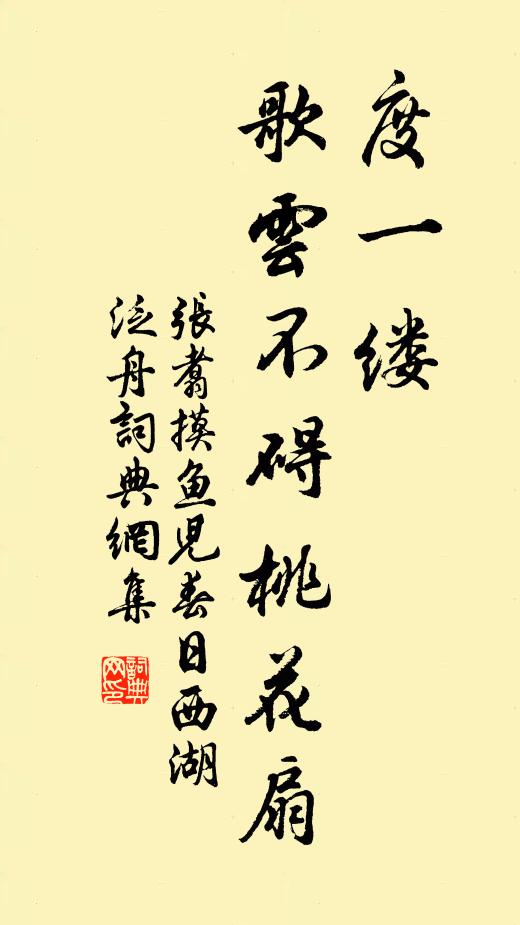 度一缕
歌雲不碍桃花扇
張翥摸鱼児春日西湖
泛舟詞典網集
詞典网印